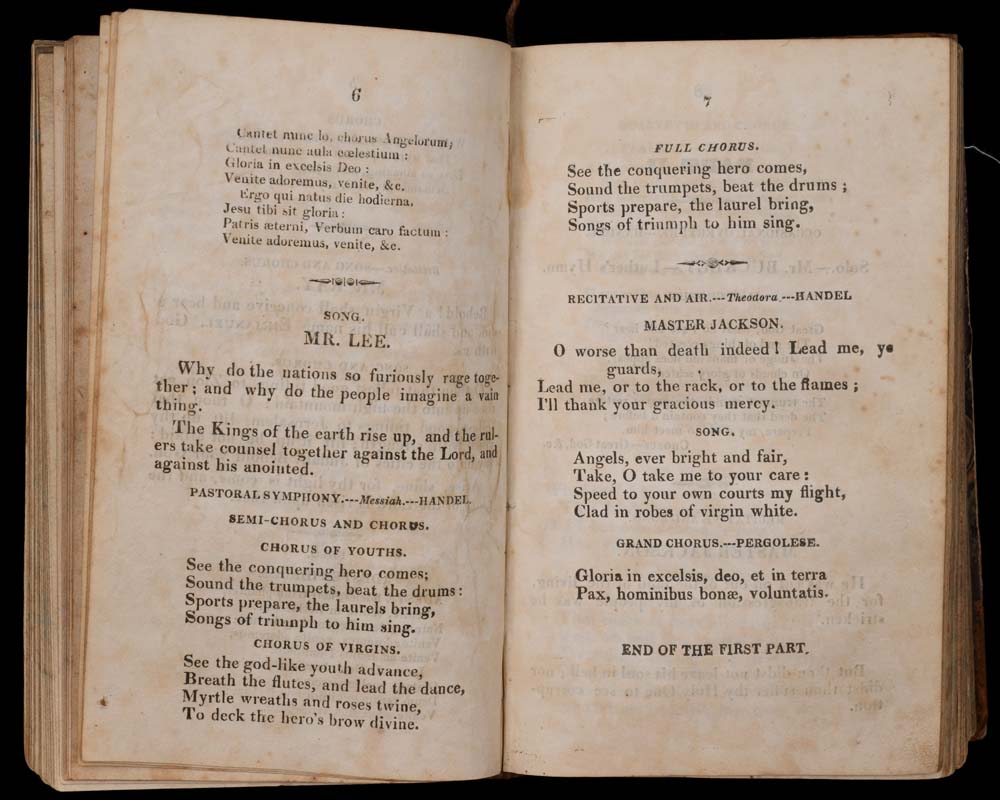 6
Cantet nunc Io, chorus Angelorum;
Cantet nunc aula cœlestium :
Gloria in excelsis Deo :
Venite adoremus, venite, &c.
Ergo qui natus die hodierna,
Jesu tibi sit gloria :
Patris æterni, Verbum caro factum :
Venite adoremus, venite, &c.
SONG.
MR. LEE.
Why do the nations so furiously rage toge-
ther; and why do the people imagine a vain
thing.
The Kings of the earth rise up, and the rul-
ers take counsel together against the Lord, and
against his anointed.
PASTORAL SYMPHONY.---Messiah.---HANDEL.
SEMI-CHORUS AND CHORUS.
CHORUS OF YOUTHS.
See the conquering hero comes;
Sound the trumpets, beat the drums :
Sports prepare, the laurels bring,
Songs of triumph to him sing.
CHORUS OF VIRGINS.
See the god-like youth advance,
Breath the flutes, and lead the dance,
Myrtle wreaths and roses twine,
To deck the hero's brow divine.
7
FULL CHORUS.
See the conquering hero comes,
Sound the trumpets, beat the drums ;
Sports prepare, the laurel bring,
Songs of triumph to him sing.
RECITATIVE AND AIR.---Theodora.---HANDEL
MASTER JACKSON.
O worse than death indeed! Lead me, ye
guards,
Lead me, or to the rack, or to the flames ;
I'll thank your gracious mercy.
SONG.
Angels, ever bright and fair,
Take, O take me to your care :
Speed to your own courts my flight,
Clad in robes of virgin white.
GRAND CHORUS.---PERGOLESE.
Gloria in excelsis, deo, et in terra
Pax, hominibus bonæ, voluntatis.
END OF THE FIRST PART.